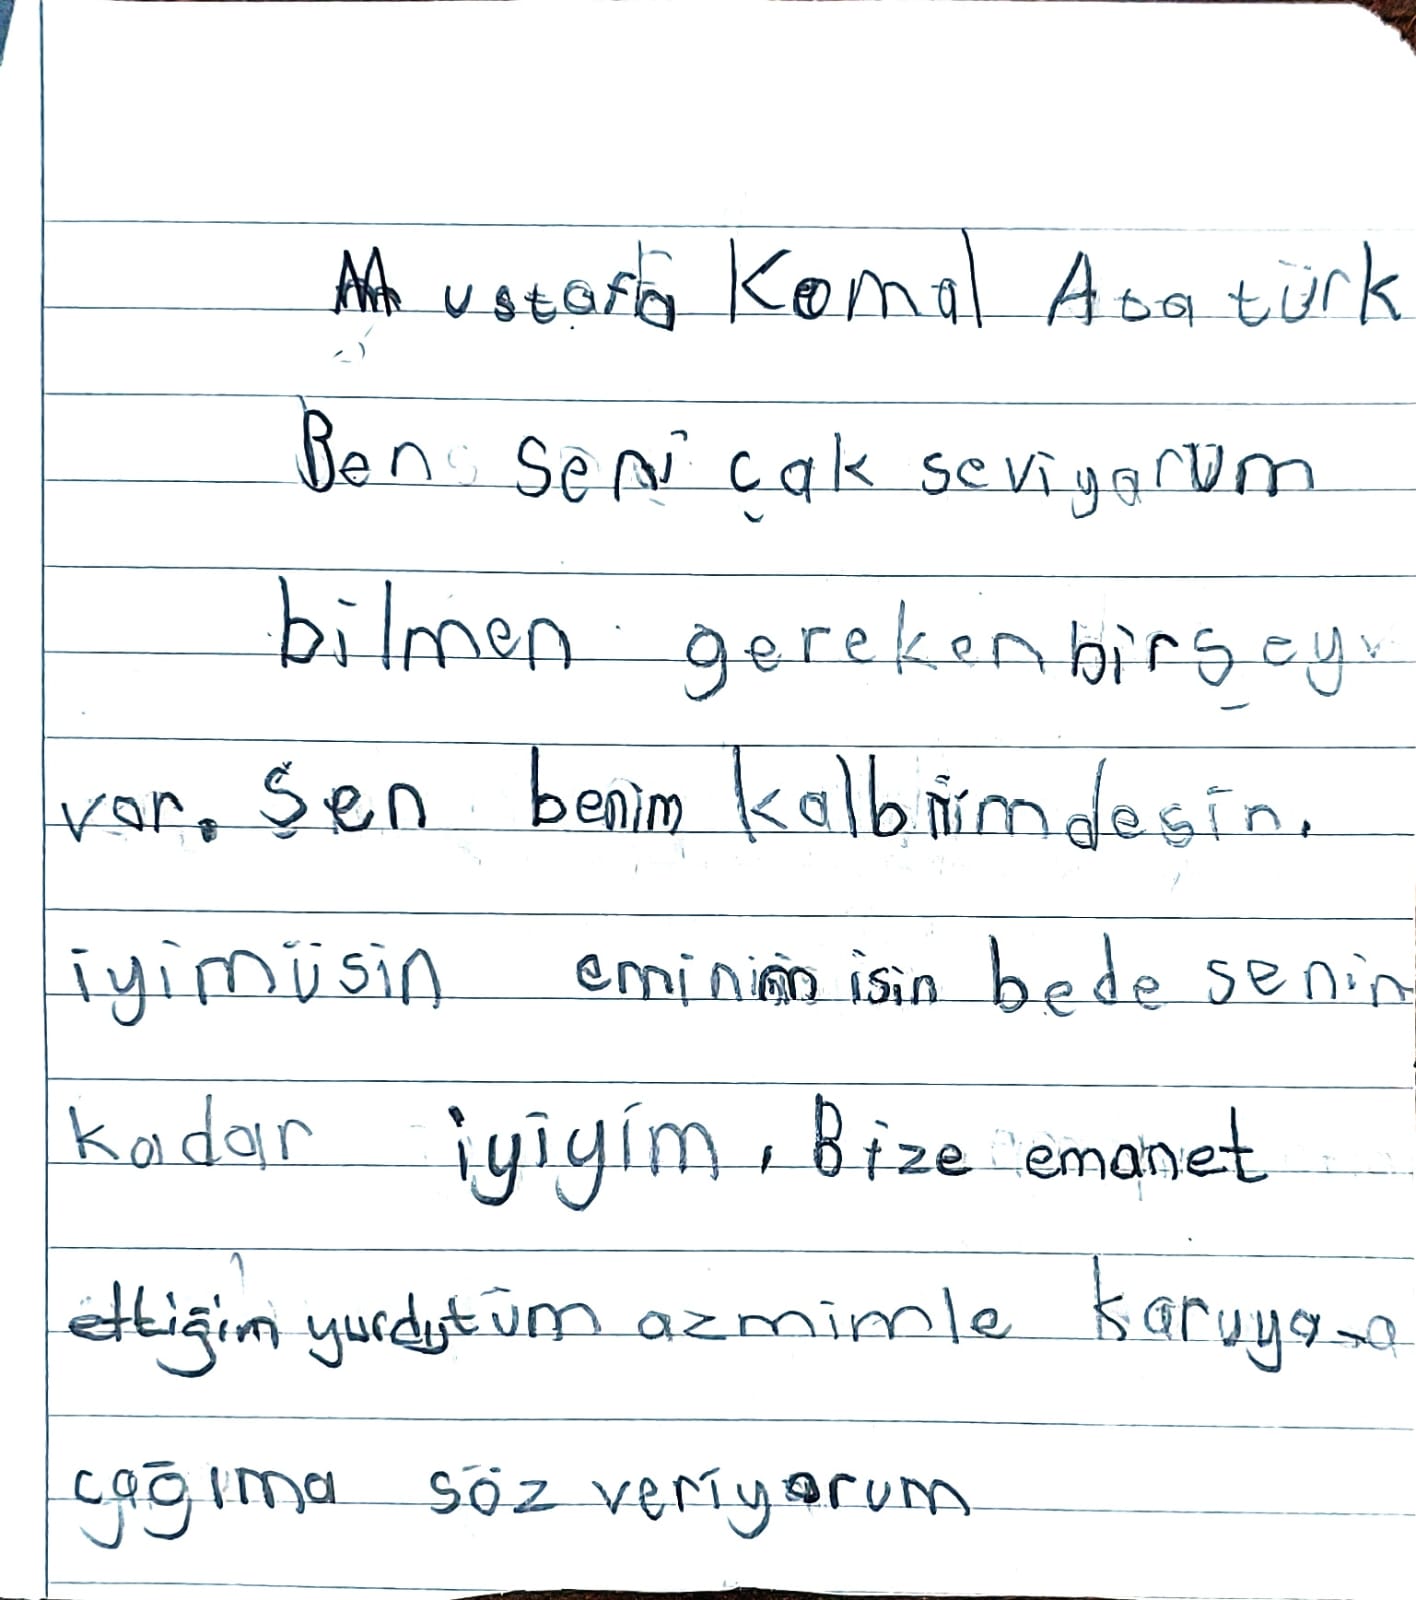 Mustafa Kemal Atatürk
Ben seni çok seviyorum
bilmen gereken birşey
var. Sen benim kalbimdesin.
iyimüsin eminim isin bede senin
kadar iyiyim, Bize emanet
ettiğin yurdu tüm azmimle koruya
cağıma söz veriyorum